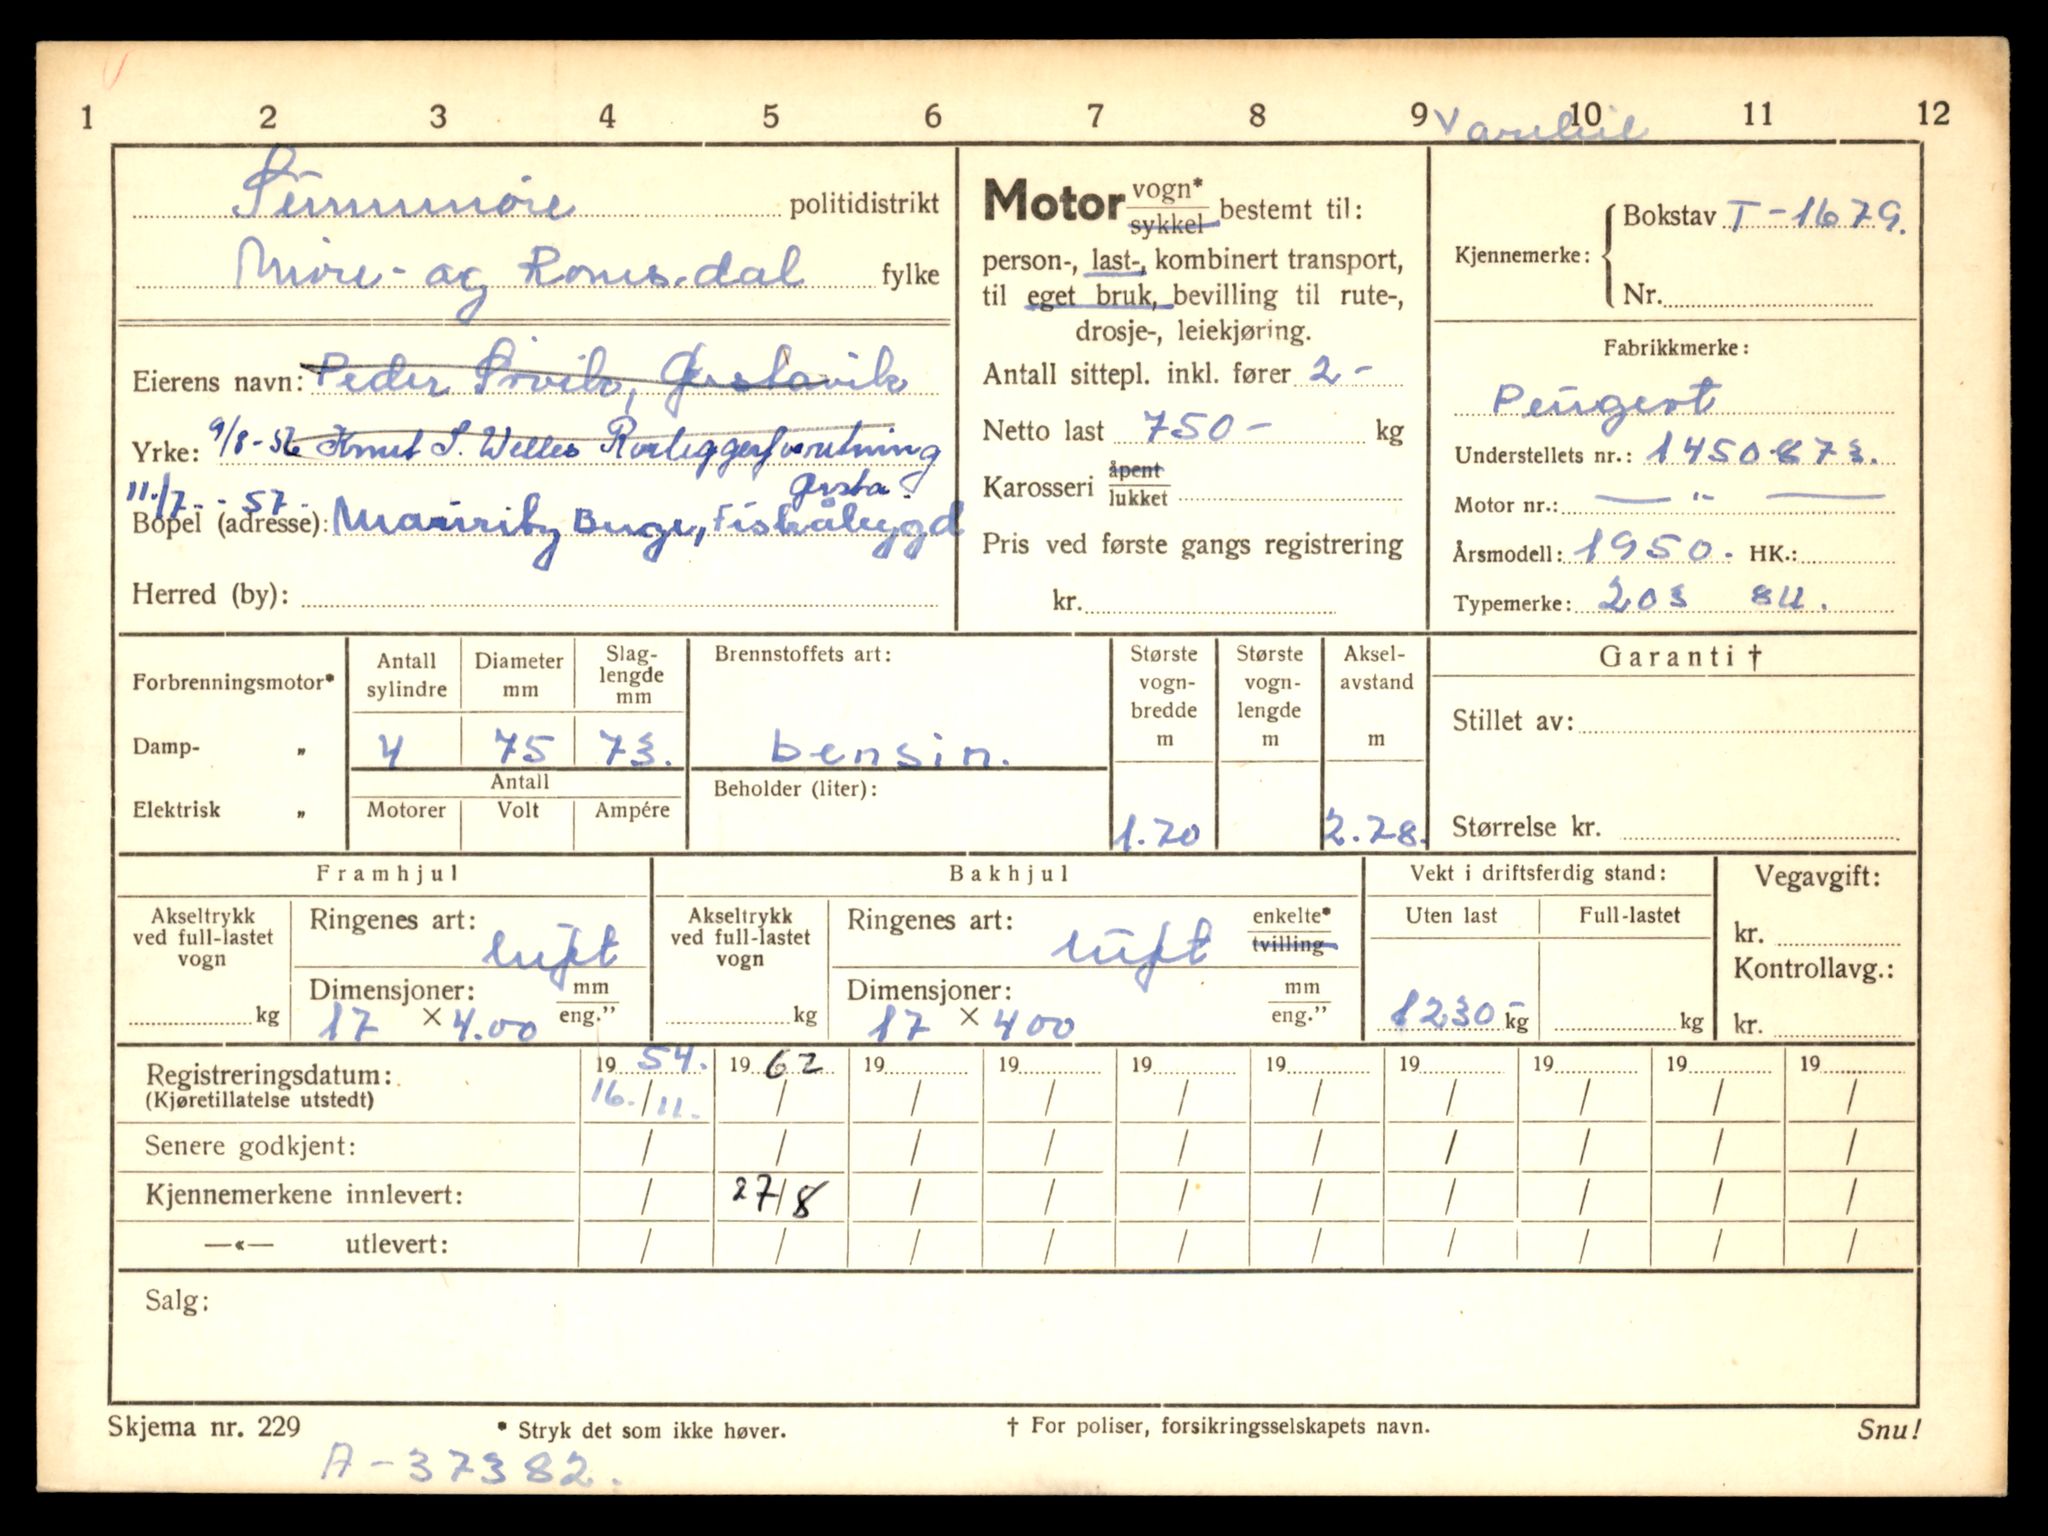 1 2 3 4 5 6 7 8 9 10 11 12
Varebil
Sunnmøre politidistrikt
Møre- og Romsdal fylke
Eierens navn: Peder
Yrke: 9/8-56 Knut S. Welles Rørleggerforretning
Ørsta.
11./7.-57.
Bopel (adresse): Mauritz Berge, Fiskåbygd
Herred (by):
Motor vogn* sykkel bestemt til:
person-, last-, kombinert transport,
til eget bruk, bevilling til rute-,
drosje-, leiekjøring.
Antall sittepl. inkl. fører 2-
Netto last 750- kg
Karosseri åpent lukket
Pris ved første gangs registrering
kr.
Kjennemerke: Bokstav T-1679.
Nr.
Fabrikkmerke:
Peugeot
Understellets nr.: 1450873.
Motor nr.: — " —
Årsmodell: 1950. HK.:
Typemerke: 203 8U.
Forbrenningsmotor*
Damp- „
Elektrisk „
Antall sylindre
4
Diameter mm
75
Slag-
lengde
mm
73.
Antall
Motorer Volt Ampére
Brennstoffets art:
bensin.
Beholder (liter):
Største
vogn-
bredde
m
1.20
Største
vogn-
lengde
m
Aksel-
avstand
m
2.28.
Garanti †
Stillet av:
Størrelse kr.
Framhjul
Akseltrykk
ved full-lastet
vogn
kg
Ringenes art:
luft
Dimensjoner: mm eng.”
17 × 4.00
Bakhjul
Akseltrykk
ved full-lastet
vogn
kg
Ringenes art: enkelte* tvilling
luft
Dimensjoner: mm eng.”
17 × 400
Vekt i driftsferdig stand:
Uten last Full-lastet
1230- kg kg
Vegavgift:
kr.
Kontrollavg.:
kr.
Registreringsdatum: 19 54. 19 62 19 19 19 19 19 19 19 19
(Kjøretillatelse utstedt) 16./11. / / / / / / / / /
Senere godkjent: / / / / / / / / / /
Kjennemerkene innlevert: / 27/8 / / / / / / / /
—«— utlevert: / / / / / / / / / /
Salg:
Skjema nr. 229 * Stryk det som ikke høver. † For poliser, forsikringsselskapets navn. Snu!
A-37382.